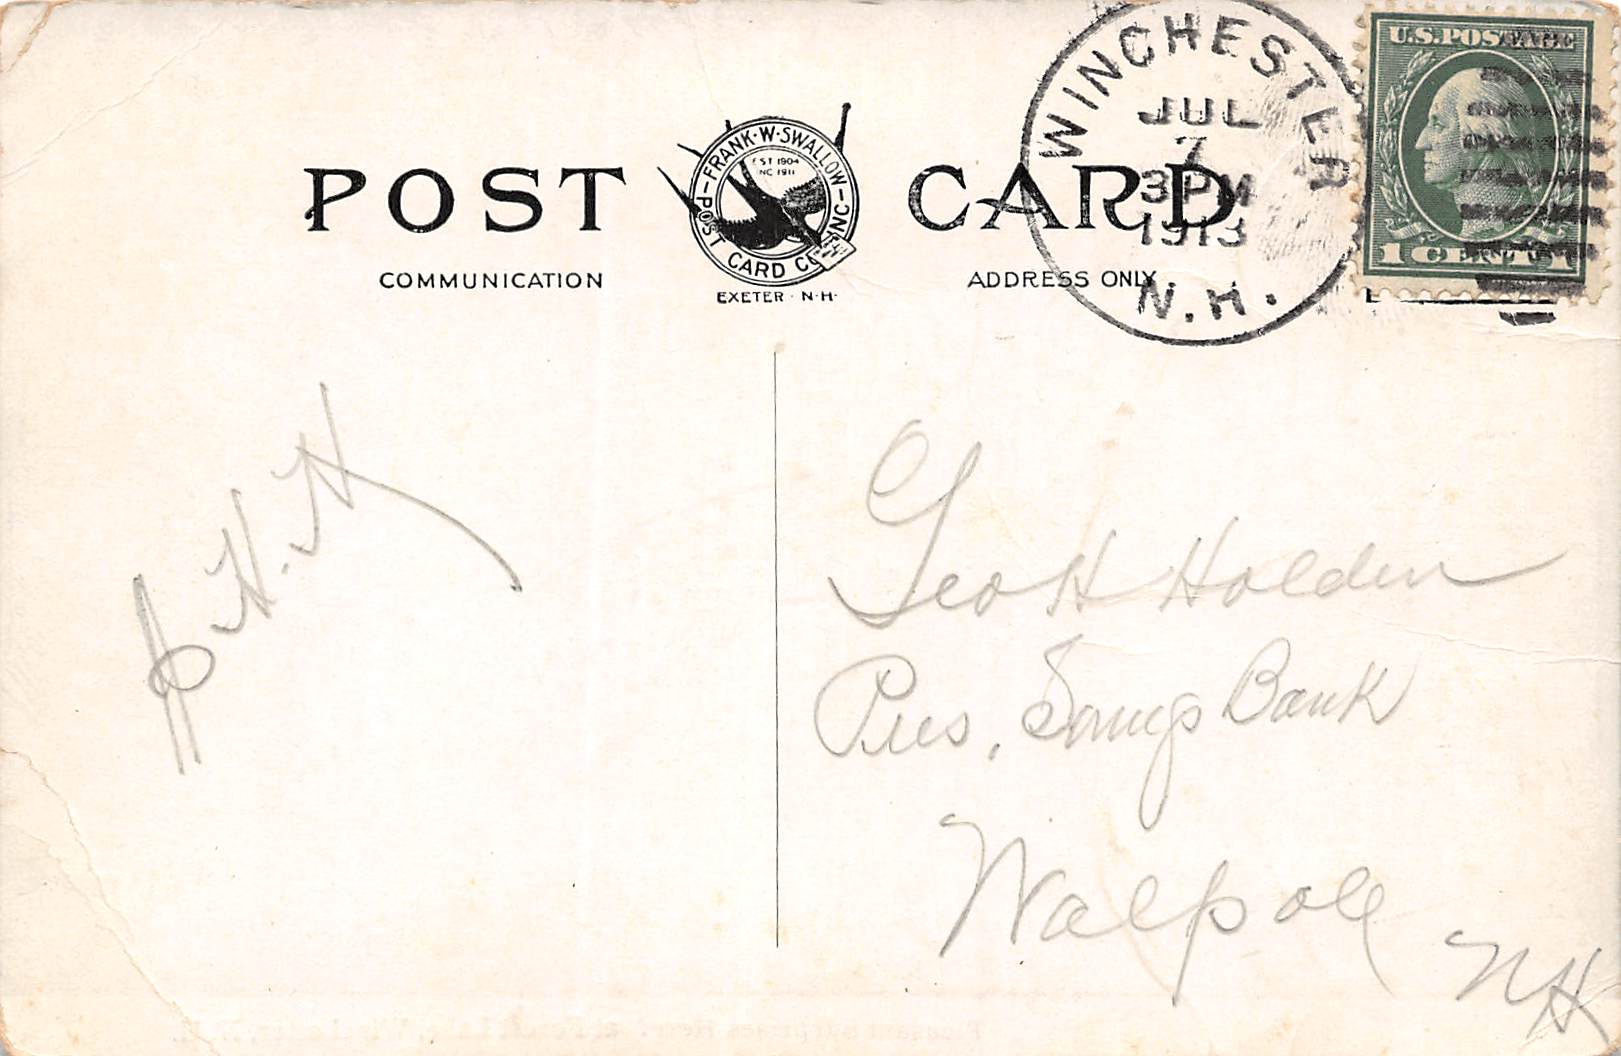 WINCHESTER
JUL
7
3 PM
1913
N.H.
U.S. POSTAGE
1 CENT 1
POST CARD
FRANK·W·SWALLOW
POST CARD CO INC
EST 1904
INC 1911
EXETER · N·H·
COMMUNICATION
ADDRESS ONLY
H.H.
Geo H Holden
Pres, Savings Bank
Walpole
NH